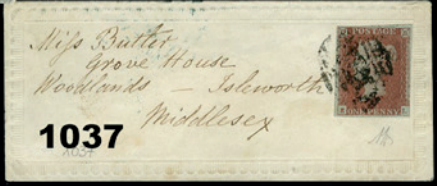 Miss Butler
Grove House
Woodlands — Isleworth
Middlesex
POSTAGE
ONE PENNY
1037
1037